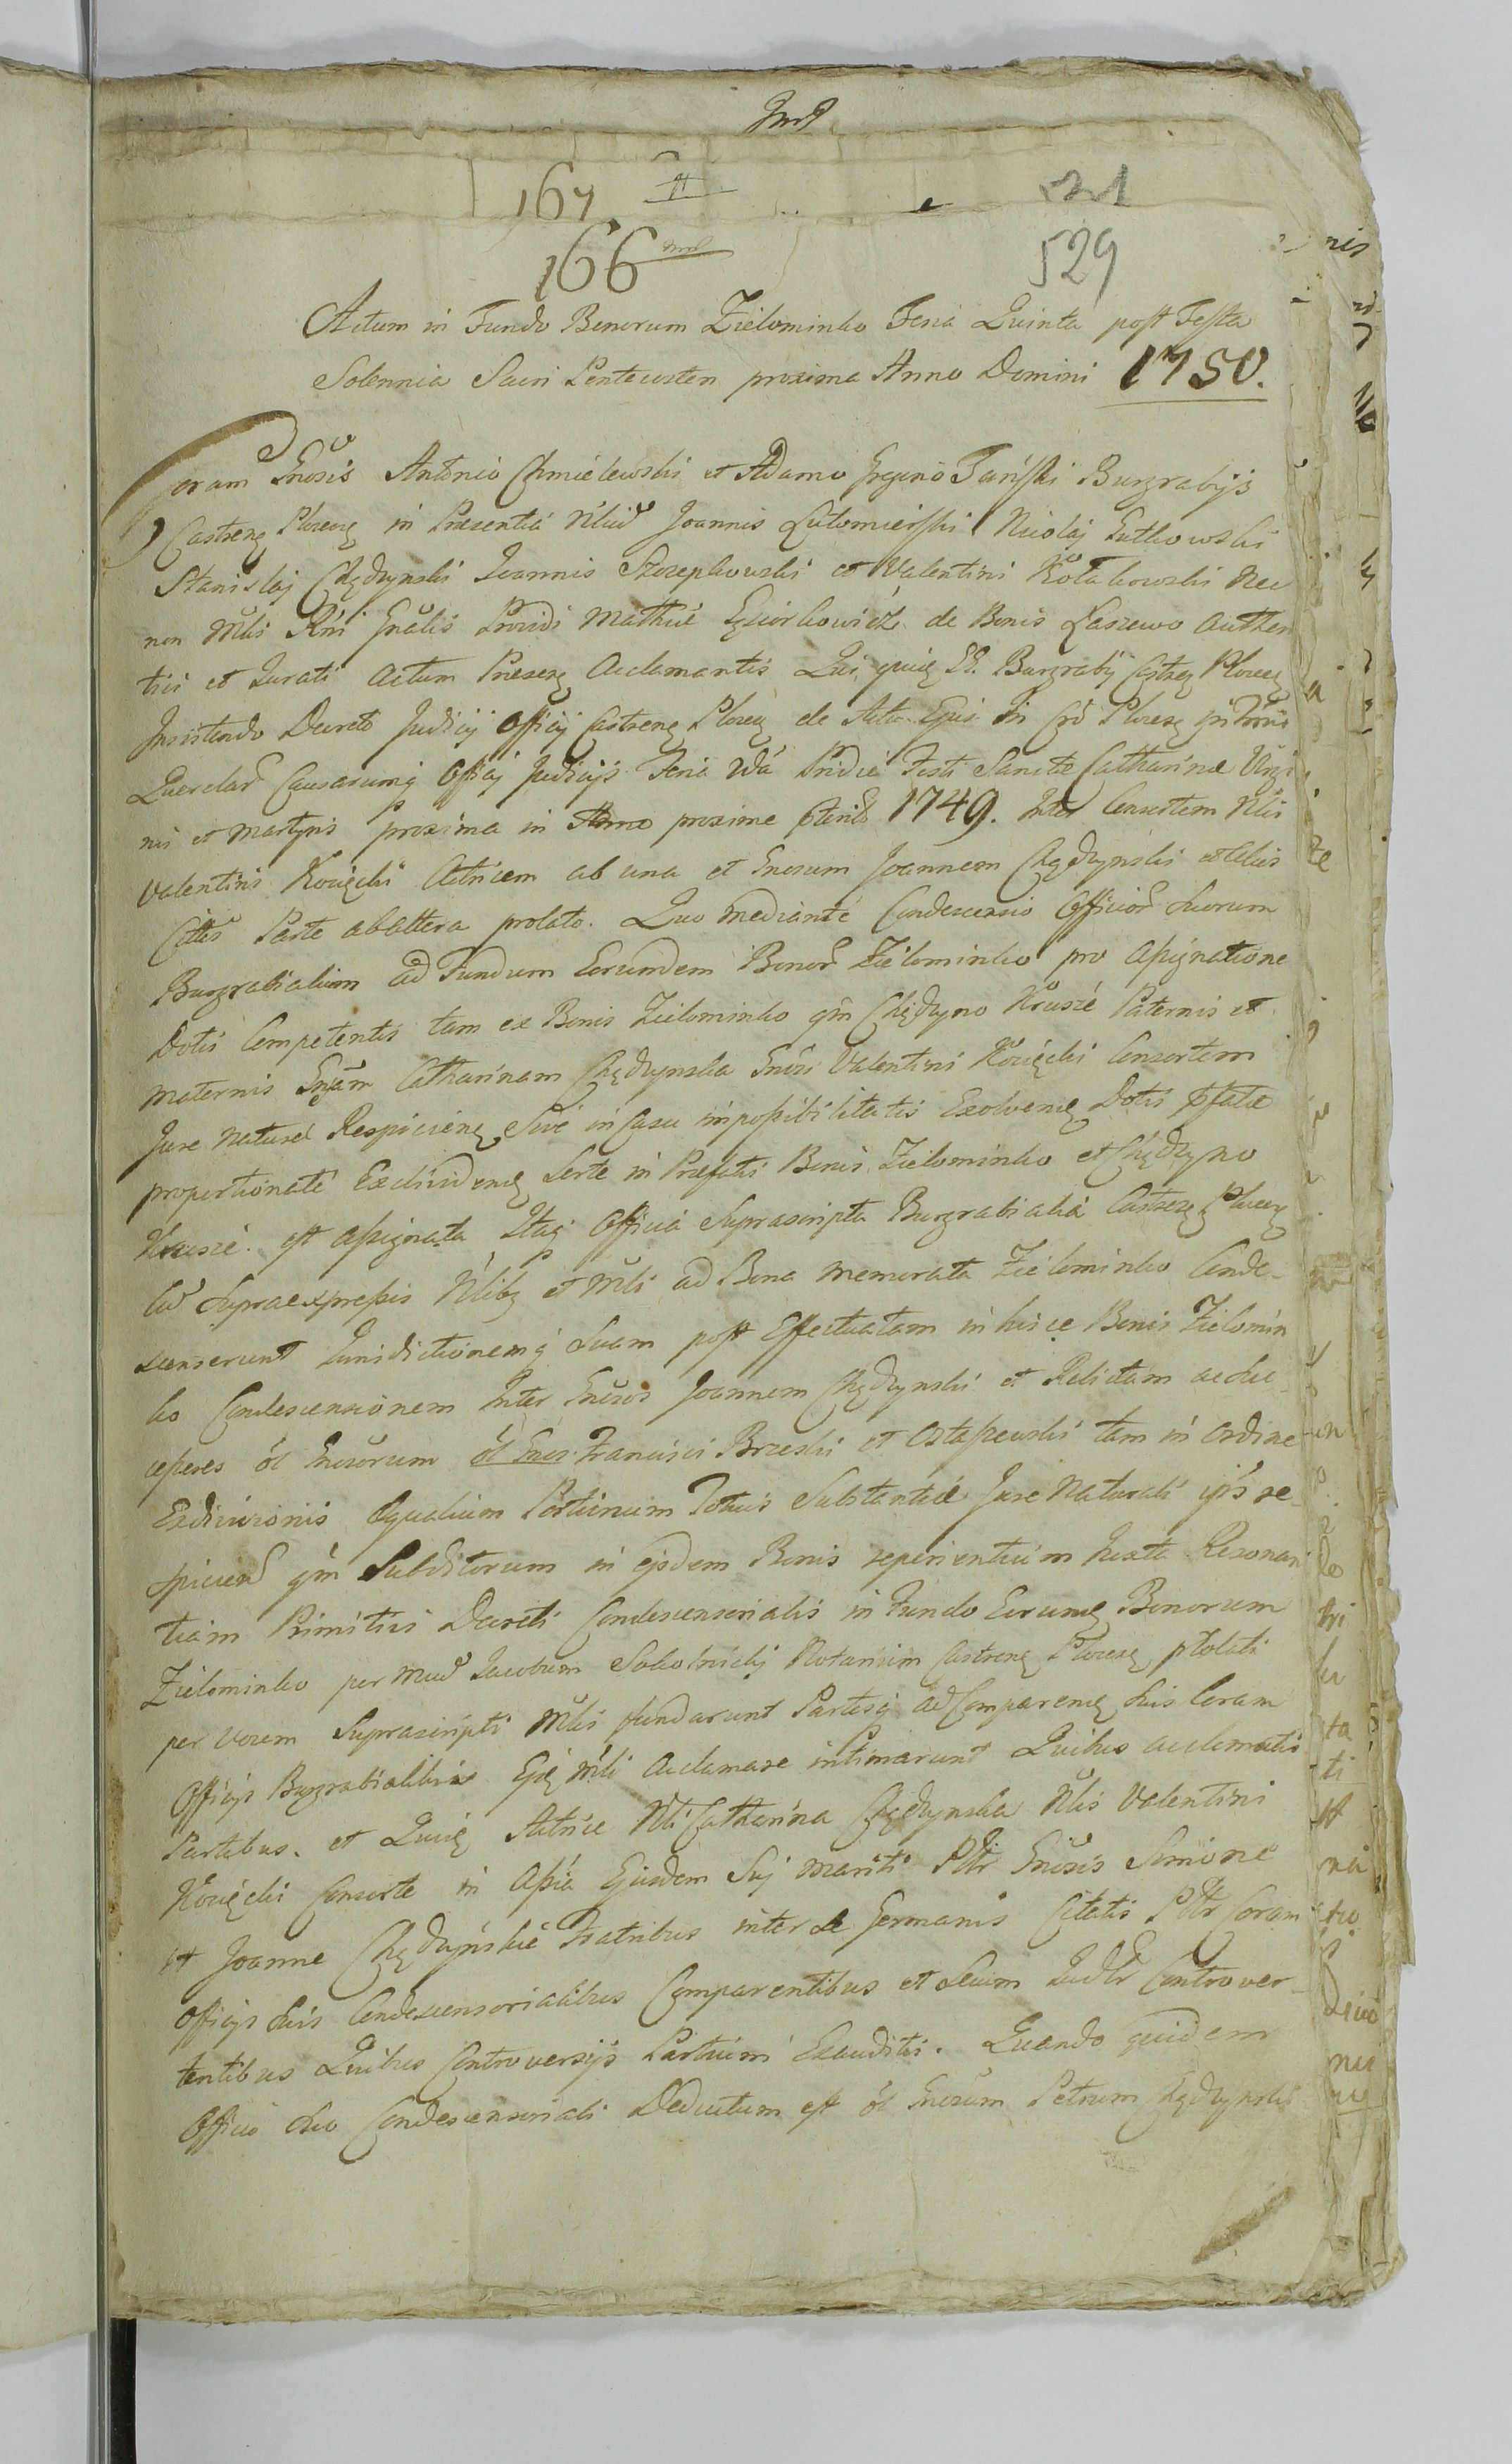 167 II
166
529
Actum in Fundo Bonorum Zielominko Feria Quinta post Festa
Solennia Sacri Pentecosten proxima Anno Domini 1750.
Coram Gnosis Antonio Chmielewski et Adamo Tański Burgrabijs
Castren Plocen in Presentia Nliū Joannis Lutomierski Nicolaj Lutkowski
Stanislaj Chędzynski Joannis Szczepkowski et Valentini Kołakowski Nec
non Mtlis Rni Gnalis Providi Mathiæ de Bonis Łaszewo Authen
tici et Jurati Actum Presens Acclamantis Qui quidę Burgrabij Castreń Plocen
Insistendo Decreto Judicij Officij Castrenę Plocen de
Querelar Causarumq Officij Judicijs Feria 2da Pridie Festi Sanctæ Catharinæ Virgi
nis et Martyris proxima in Anno proxime pterito 1749. Inter Consortem Nlis
Valentini Kosięcki Actricem ab una et Gnosum Joannem Chędzynski et alios
Cittos Parte ab altera prolato. Quo mediante Condescensio Officior duorum
Burgrabialium ad Fundum Eorundem Bonor Zielominko pro assignatione
Dotis Competentis tam ex Bonis Zielominko qm Chędzyno Krusze Paternis et
Maternis Gnam Catharinam Chędzynska Gnosi Valentini Kosięcki Consortem
Jure Naturæ Respicienę Sive in Casu impossibilitatis Exolvenę Dotis pfatæ
proportionate Exdividenę Sorte in Præfatis Bonis Zielominko et Chędzyno
Krusze. est assignata Itaq Officia Suprascripta Burgrabialia Castren Plocen
Cū Supraexpressis Nlibq et Mtli ad Bona memorata Zielominko Conde-
scenserunt Jurisdictionemq Suam post Effectuatam in hisce Bonis Zielomin
ko Condescensionem Inter Gnosos Joannem Chędzynski et Relictam ac Suc
cepores ol Gnosorum ol Gnos. Francisci Brzeski et Ostaszewski tam in ordine
Exdivisionis Equalium Portionum Totius Substantiæ Jure Naturali ipis re-
spicien qm Subditorum in ejsdem Bonis reperientium Juxta Resonan
tiam Primitivi Decreti Condescensorialis in Fundo Eorunę Bonorum
Zielominko per Mū Jacobum Sokolnicki Notarium Castrenę Plocen ptolati
per vocem Suprascripti Mtlis fundarunt Partesq ad Comparenę Suis Coram
Officijs Burgrabialibus Ejsę Mtli Acclamare intimarunt Quibus acclamatis
Partibus. et Quidę Actrice Nli Catharina Chędzynska Nlis Valentini
Kosięcki Consorte in Assia Ejusdem Suj mariti Ptr Gnosis Simone
et Joanne Chędzynskie Fratribus inter se Germanis Citatis Ptr Coram
Officijs Suis Condescensorialibus Comparentibus et Secum Judtr Controver-
tentibus Quibus Controversijs Partium Exauditis. Quando quidem
Officio Suo Condescensoriali Deductum est ol Gnosum Petrum Chędzynski